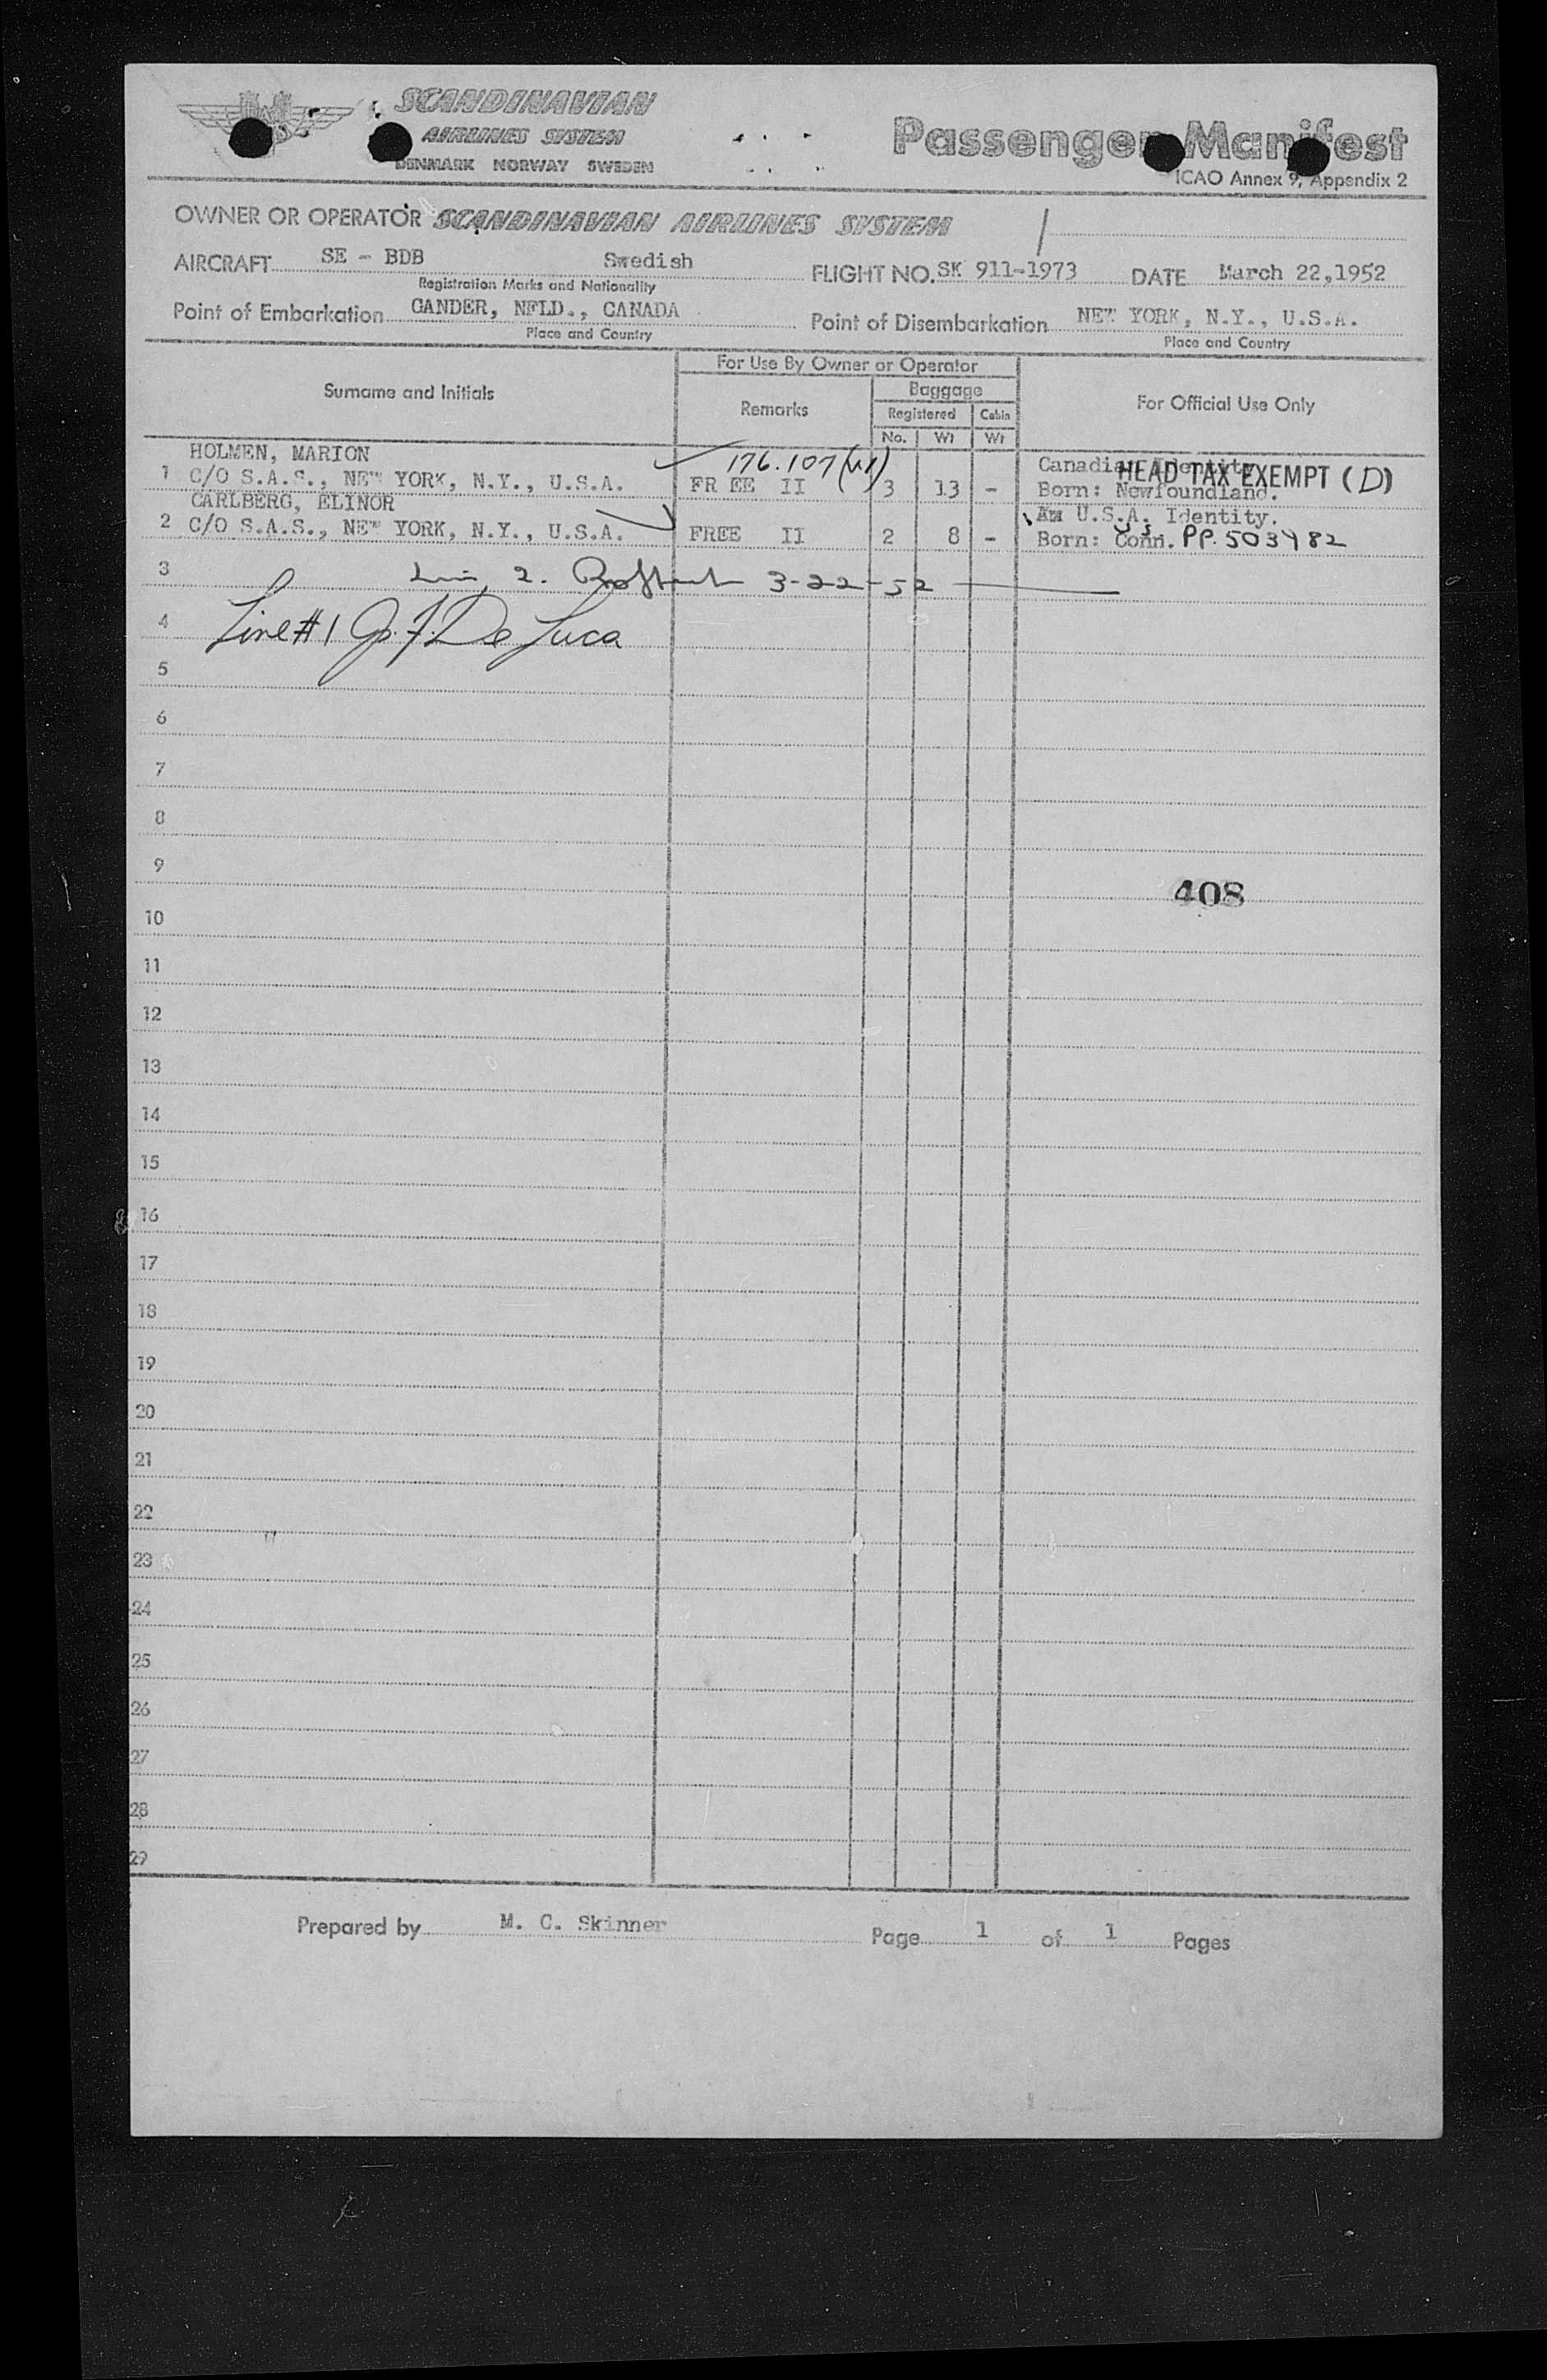 SCANDINAVIAN
AIRLINES SYSTEM
DENMARK NORWAY SWEDEN
Passenger Manifest
ICAO Annex 9, Appendix 2
OWNER OR OPERATOR SCANDINAVIAN AIRLINES SYSTEM
AIRCRAFT SE - BDB Swedish FLIGHT NO. SK 911-1973 DATE March 22,1952
Registration Marks and Nationality
Point of Embarkation GANDER, NFLD., CANADA Point of Disembarkation NEW YORK, N.Y., U.S.A.
Place and Country Place and Country
For Use By Owner or Operator
Surname and Initials Remarks Baggage For Official Use Only
Registered Cabin
No. Wt Wt
HOLMEN, MARION 176.107 Canadian Identity
1 C/O S.A.S., NEW YORK, N.Y., U.S.A. FR EE II 3 13 - Born: Newfoundland.
HEAD TAX EXEMPT (D)
CARLBERG, ELINOR U.S.A. Identity.
2 C/O S.A.S., NEW YORK, N.Y., U.S.A. FREE II 2 8 - Born: Conn. PP. 503982
3 2. 3-22-52
4 Line #1 De Luca
5
6
7
8
9
408
10
11
12
13
14
15
16
17
18
19
20
21
22
23
24
25
26
27
28
29
Prepared by M. C. Skinner Page 1 of 1 Pages